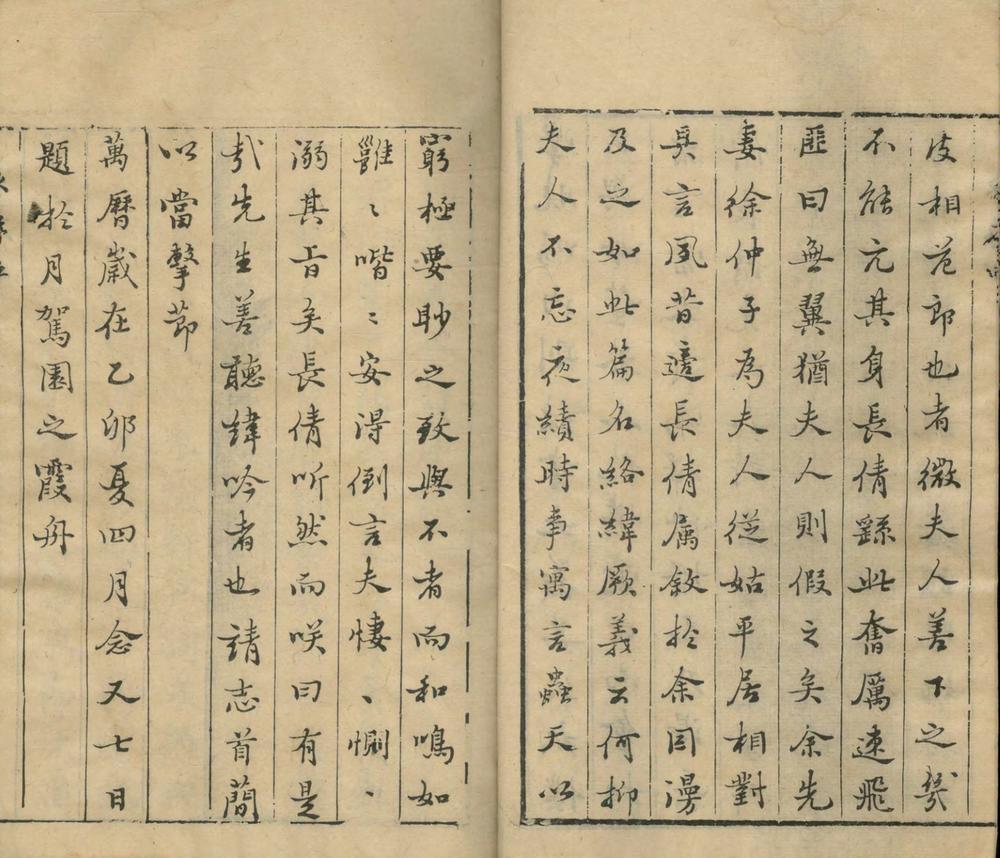 皮相范郎也者微夫人善下之幾
不能亢其身長倩繇此奮厲速飛
匪曰無翼猶夫人則假之矣余先
妻徐仲子為夫人從姑平居相對
具言夙昔適長倩属敘於余因漫
及之如此篇名絡緯厥義云何抑
夫人不忘夜績時事寓言蟲天以
窮極要眇之致與不者而和鳴如
雝〻喈〻安得倒言夫悽〻惻〻
溺其旨矣長倩听然而咲曰有是
哉先生善聽緯吟者也請志首簡
以當擊節
萬曆歲在乙卯夏四月念又七日
題於月駕園之霞舟